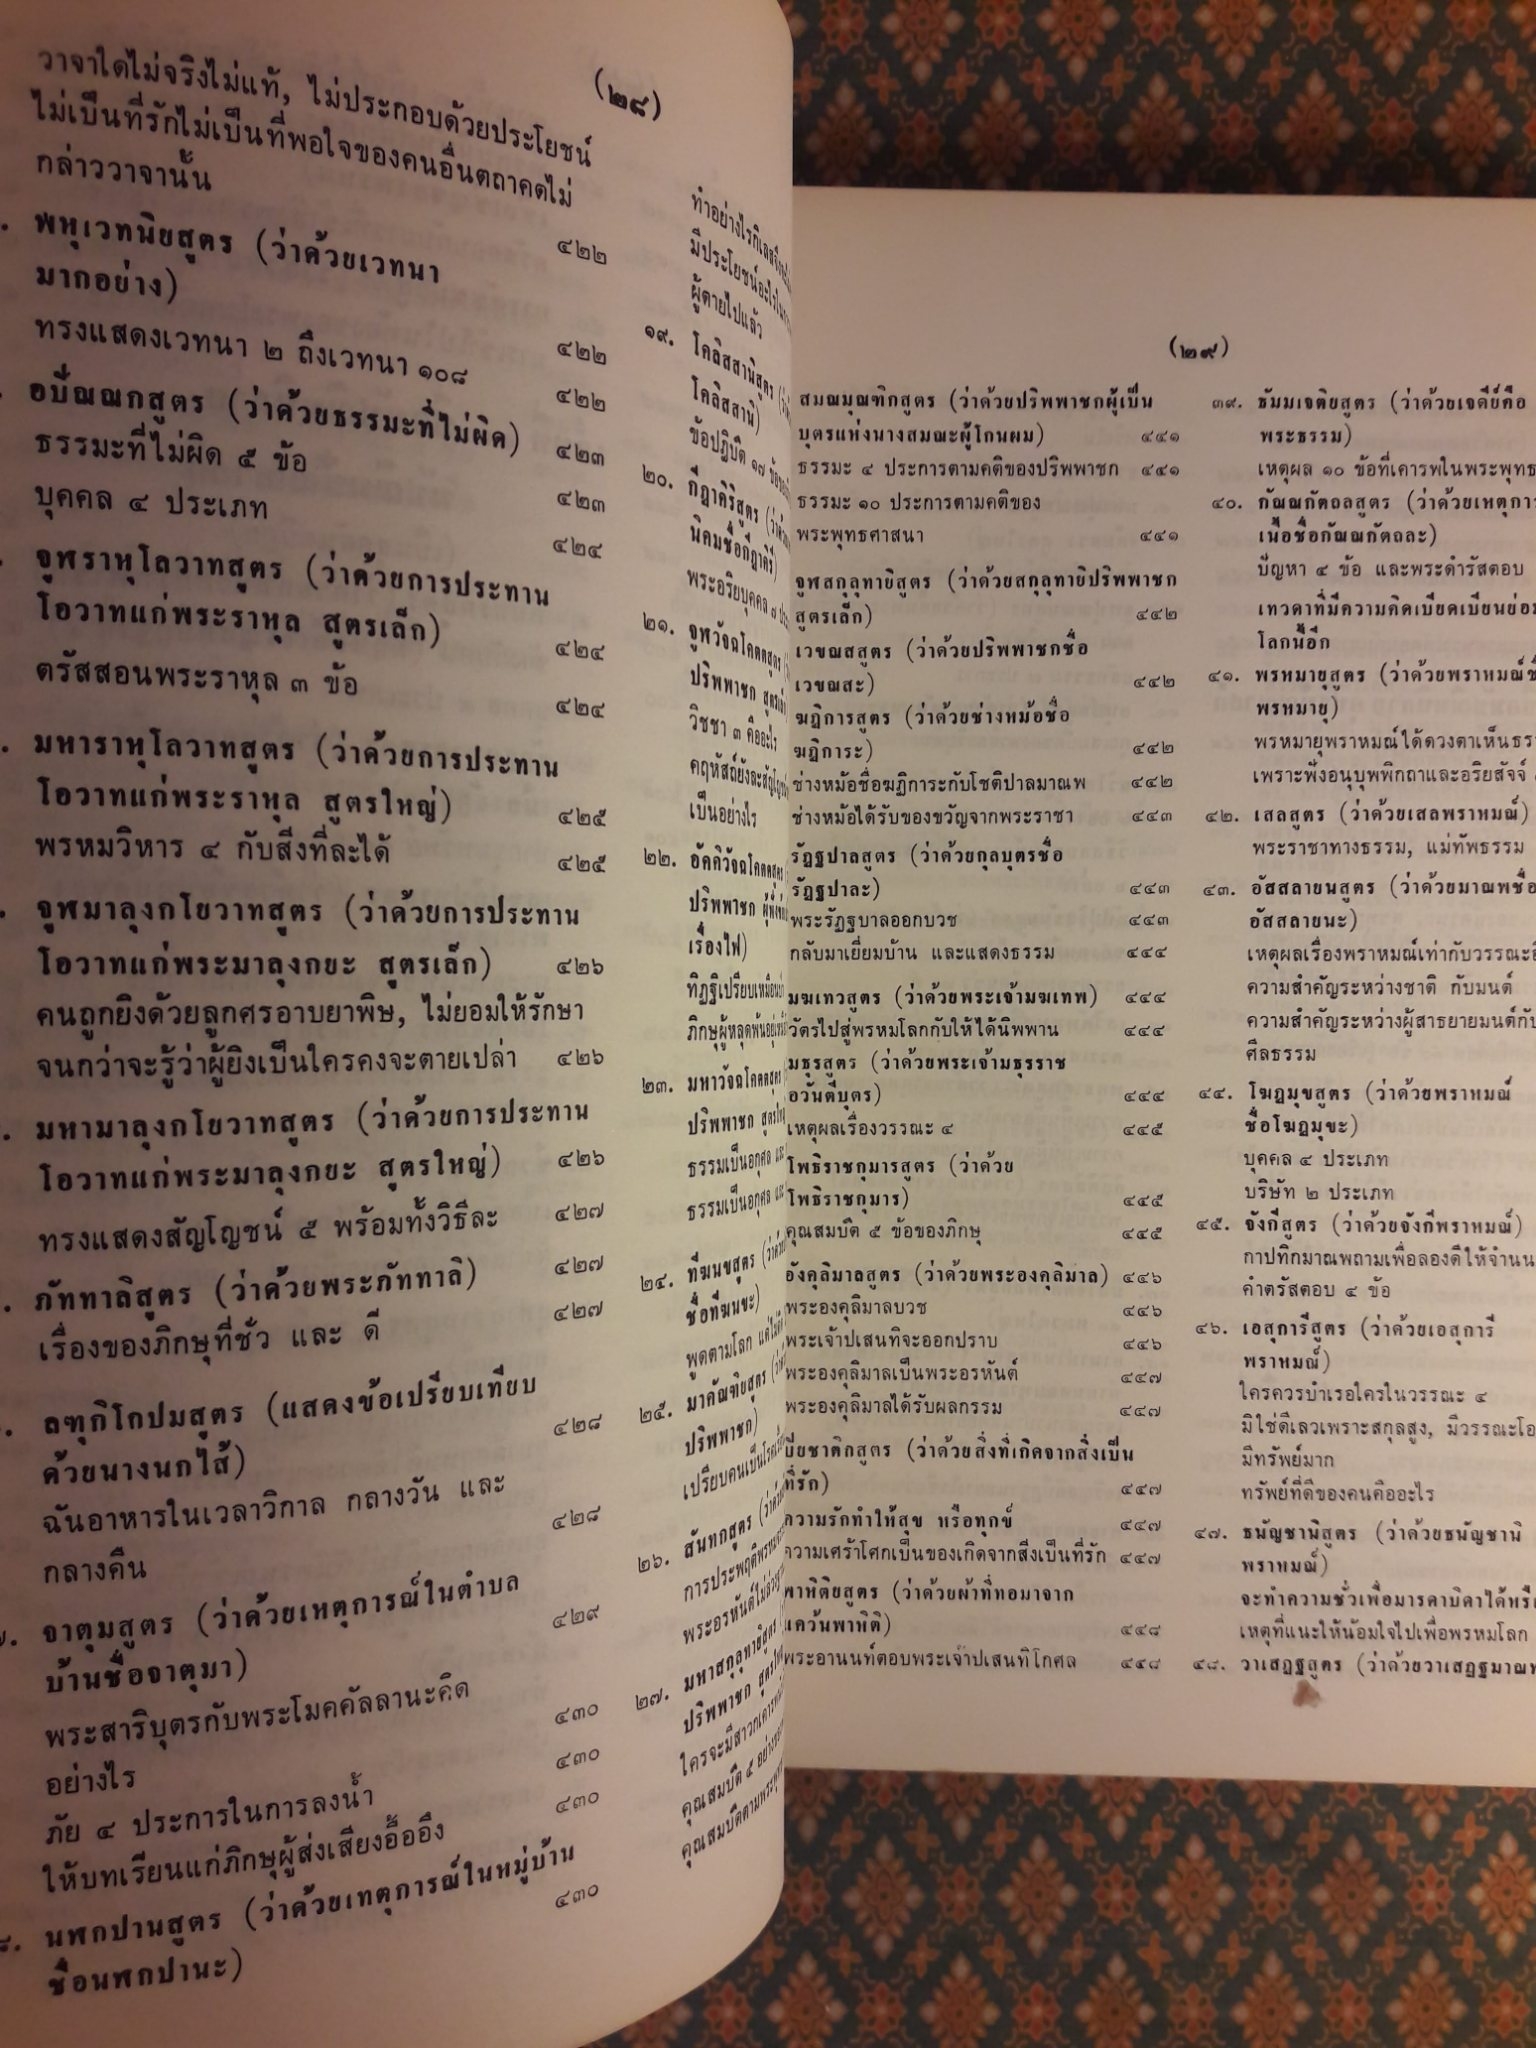 (๒๘)
วาจาใดไม่จริงไม่แท้, ไม่ประกอบด้วยประโยชน์
ไม่เป็นที่รักไม่เป็นที่พอใจของคนอื่นตถาคตไม่
กล่าววาจานั้น
๔๒๒
พหุเวทนิยสูตร (ว่าด้วยเวทนา
มากอย่าง)
๔๒๒
ทรงแสดงเวทนา ๒ ถึงเวทนา ๑๐๘
๔๒๒
อปัณณกสูตร (ว่าด้วยธรรมะที่ไม่ผิด)
๔๒๓
ธรรมะที่ไม่ผิด ๕ ข้อ
๔๒๓
บุคคล ๔ ประเภท
๔๒๔
จูฬราหุโลวาทสูตร (ว่าด้วยการประทาน
โอวาทแก่พระราหุล สูตรเล็ก)
๔๒๔
ตรัสสอนพระราหุล ๓ ข้อ
๔๒๔
มหาราหุโลวาทสูตร (ว่าด้วยการประทาน
โอวาทแก่พระราหุล สูตรใหญ่)
๔๒๕
พรหมวิหาร ๔ กับสิ่งที่ละได้
๔๒๕
จูฬมาลุงกโยวาทสูตร (ว่าด้วยการประทาน
โอวาทแก่พระมาลุงกยะ สูตรเล็ก)
๔๒๖
คนถูกยิงด้วยลูกศรอาบยาพิษ, ไม่ยอมให้รักษา
จนกว่าจะรู้ว่าผู้ยิงเป็นใครคงจะตายเปล่า
๔๒๖
มหามาลุงกโยวาทสูตร (ว่าด้วยการประทาน
โอวาทแก่พระมาลุงกยะ สูตรใหญ่)
๔๒๖
ทรงแสดงสัญโญชน์ ๕ พร้อมทั้งวิธีละ
๔๒๗
ภัททาลิสูตร (ว่าด้วยพระภัททาลิ)
๔๒๗
เรื่องของภิกษุที่ชั่ว และ ดี
๔๒๗
ลฑุกิโกปมสูตร (แสดงข้อเปรียบเทียบ
ด้วยนางนกไส้)
๔๒๘
ฉันอาหารในเวลาวิกาล กลางวัน และ
กลางคืน
๔๒๘
จาตุมสูตร (ว่าด้วยเหตุการณ์ในตำบล
บ้านชื่อจาตุมา)
๔๒๙
พระสาริบุตรกับพระโมคคัลลานะคิด
อย่างไร
๔๓๐
ภัย ๔ ประการในการลงน้ำ
๔๓๐
ให้บทเรียนแก่ภิกษุผู้ส่งเสียงอื้ออึง
๔๓๐
นฬกปานสูตร (ว่าด้วยเหตุการณ์ในหมู่บ้าน
ชื่อนฬกปานะ)
๔๓๐
ทำอย่างไรกิเลสจึง
มีประโยชน์อะไรใน
ผู้ตายไปแล้ว
๑๙. โคลิสสานิสูตร
โคลิสสานิ)
ข้อปฏิบัติ ๑๗ ข้อ
๒๐. กีฏาคิริสูตร
นิคมชื่อกีฏาคิรี)
พระอริยบุคคล ๗
๒๑. จูฬวัจฉโคตตสูตร
ปริพพาชก สูตรเล็ก
วิชชา ๓ คืออะไร
คฤหัสถ์ยังละ
เป็นอย่างไร
๒๒. อัคคิวัจฉโคตตสูตร
ปริพพาชก
เรื่องไฟ)
ทิฏฐิเปรียบเหมือน
ภิกษุผู้หลุดพ้น
๒๓. มหาวัจฉโคตตสูตร
ปริพพาชก สูตรใหญ่
ธรรมเป็นอกุศล
ธรรมเป็นอกุศล
๒๔. ทีฆนขสูตร
ชื่อทีฆนขะ)
พูดตามโลก
๒๕. มาคัณฑิยสูตร
ปริพพาชก)
เปรียบคนเป็นโรค
๒๖. สันทกสูตร
การประพฤติ
พระอรหันต์ไม่
๒๗. มหาสกุลุทายิสูตร
ปริพพาชก
ใครจะมีสาวก
คุณสมบัติ ๕ อย่าง
คุณสมบัติตาม
(๒๙)
สมณมุณฑิกสูตร (ว่าด้วยปริพพาชกผู้เป็น
บุตรแห่งนางสมณะผู้โกนผม) ๔๔๑
ธรรมะ ๔ ประการตามคติของปริพพาชก ๔๔๑
ธรรมะ ๑๐ ประการตามคติของ
พระพุทธศาสนา ๔๔๑
จูฬสกุลุทายิสูตร (ว่าด้วยสกุลุทายิปริพพาชก
สูตรเล็ก) ๔๔๒
เวขณสสูตร (ว่าด้วยปริพพาชกชื่อ
เวขณสะ) ๔๔๒
ฆฏิการสูตร (ว่าด้วยช่างหม้อชื่อ
ฆฏิการะ) ๔๔๒
ช่างหม้อชื่อฆฏิการะกับโชติปาลมาณพ ๔๔๒
ช่างหม้อได้รับของขวัญจากพระราชา ๔๔๓
รัฏฐปาลสูตร (ว่าด้วยกุลบุตรชื่อ
รัฏฐปาละ) ๔๔๓
พระรัฏฐบาลออกบวช ๔๔๓
กลับมาเยี่ยมบ้าน และแสดงธรรม ๔๔๔
มฆเทวสูตร (ว่าด้วยพระเจ้ามฆเทพ) ๔๔๔
วัตรไปสู่พรหมโลกกับให้ได้นิพพาน ๔๔๔
มธุรสูตร (ว่าด้วยพระเจ้ามธุรราช
อวันตีบุตร) ๔๔๔
เหตุผลเรื่องวรรณะ ๔ ๔๔๕
โพธิราชกุมารสูตร (ว่าด้วย
โพธิราชกุมาร) ๔๔๕
คุณสมบัติ ๕ ข้อของภิกษุ ๔๔๕
อังคุลิมาลสูตร (ว่าด้วยพระองคุลิมาล) ๔๔๖
พระองคุลิมาลบวช ๔๔๖
พระเจ้าปเสนทิจะออกปราบ ๔๔๖
พระองคุลิมาลเป็นพระอรหันต์ ๔๔๗
พระองคุลิมาลได้รับผลกรรม ๔๔๗
ปิยชาติกสูตร (ว่าด้วยสิ่งที่เกิดจากสิ่งเป็น
ที่รัก) ๔๔๗
ความรักทำให้สุข หรือทุกข์ ๔๔๗
ความเศร้าโศกเป็นของเกิดจากสิ่งเป็นที่รัก ๔๔๗
พาหิติยสูตร (ว่าด้วยผ้าที่ทอมาจาก
แคว้นพาหิติ) ๔๔๘
พระอานนท์ตอบพระเจ้าปเสนทิโกศล ๔๔๘
๓๙. ธัมมเจติยสูตร (ว่าด้วยเจดีย์คือ
พระธรรม)
เหตุผล ๑๐ ข้อที่เคารพในพระพุทธ
๔๐. กัณณกัตถลสูตร (ว่าด้วยเหตุการ
เนื้อชื่อกัณณกัตถละ)
ปัญหา ๔ ข้อ และพระดำรัสตอบ
เทวดาที่มีความคิดเบียดเบียนย่อม
โลกนี้อีก
๔๑. พรหมายุสูตร (ว่าด้วยพราหมณ์ชื่อ
พรหมายุ)
พรหมายุพราหมณ์ได้ดวงตาเห็นธรร
เพราะฟังอนุบุพพิกถาและอริยสัจจ์
๔๒. เสลสูตร (ว่าด้วยเสลพราหมณ์)
พระราชาทางธรรม, แม่ทัพธรรม
๔๓. อัสสลายนสูตร (ว่าด้วยมาณพชื่อ
อัสสลายนะ)
เหตุผลเรื่องพราหมณ์เท่ากับวรรณะอื่
ความสำคัญระหว่างชาติ กับมนต์
ความสำคัญระหว่างผู้สาธยายมนต์กับ
ศีลธรรม
๔๔. โฆฏมุขสูตร (ว่าด้วยพราหมณ์
ชื่อโฆฏมุขะ)
บุคคล ๔ ประเภท
บริษัท ๒ ประเภท
๔๕. จังกีสูตร (ว่าด้วยจังกีพราหมณ์)
กาปทิกมาณพถามเพื่อลองดีให้จำนน
คำตรัสตอบ ๔ ข้อ
๔๖. เอสุการีสูตร (ว่าด้วยเอสุการี
พราหมณ์)
ใครควรบำเรอใครในวรรณะ ๔
มิใช่ดีเลวเพราะสกุลสูง, มีวรรณะโอ
มีทรัพย์มาก
ทรัพย์ที่ดีของคนคืออะไร
๔๗. ธนัญชานิสูตร (ว่าด้วยธนัญชานิ
พราหมณ์)
จะทำความชั่วเพื่อมารดาบิดาได้หรือ
เหตุที่แนะให้น้อมใจไปเพื่อพรหมโลก
๔๘. วาเสฏฐสูตร (ว่าด้วยวาเสฏฐมาณพ